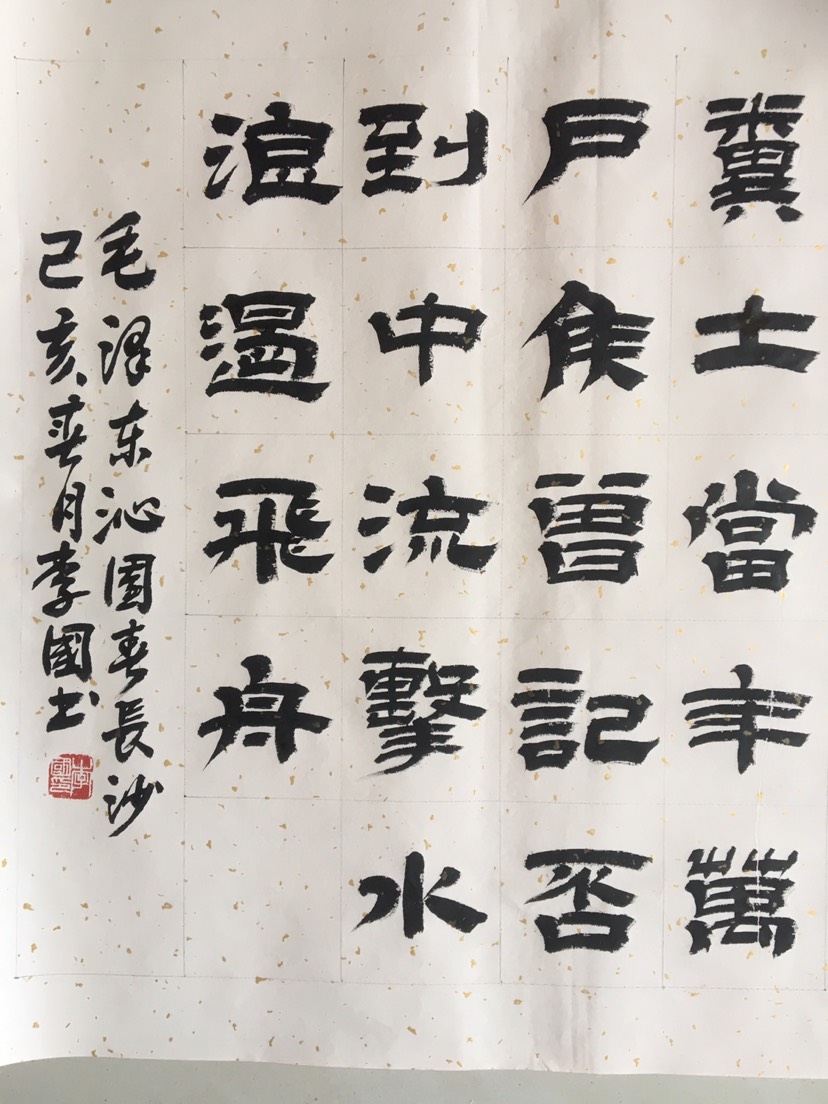 糞土當年萬
户侯曾記否
到中流擊水
浪遏飛舟
毛泽东沁園春長沙
己亥春月李國书